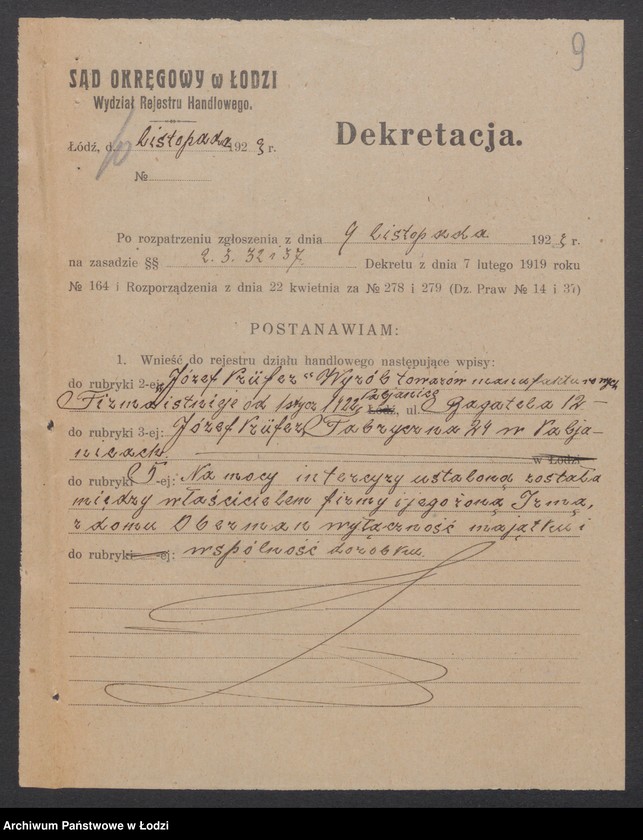 9
SĄD OKRĘGOWY w ŁODZI
Wydział Rejestru Handlowego.
Dekretacja.
Łódź, d. 10 listopada 1923 r.
№
Po rozpatrzeniu zgłoszenia z dnia 9 listopada 1923 r.
na zasadzie §§ 2. 3. 32 i 37 Dekretu z dnia 7 lutego 1919 roku
№ 164 i Rozporządzenia z dnia 22 kwietnia za № 278 i 279 (Dz. Praw № 14 i 37)
POSTANAWIAM:
1. Wnieść do rejestru działu handlowego następujące wpisy:
do rubryki 2-ej: „Józef Krüfer" Wyrób towarów manufakturowych
Firma istnieje od 1 stycz 1922, Pabjanice Łódź, ul. Bagatela 12 –
do rubryki 3-ej: Józef Krüfer, Fabryczna 24 w Pabja-
nicach. w Łodzi
do rubryki 5-ej: Na mocy intercyzy ustaloną została
między właścicielem firmy i jego żoną Irmą,
z domu Oberman wyłączność majątku i
do rubryki -ej: wspólność dorobku.
Archiwum Państwowe w Łodzi